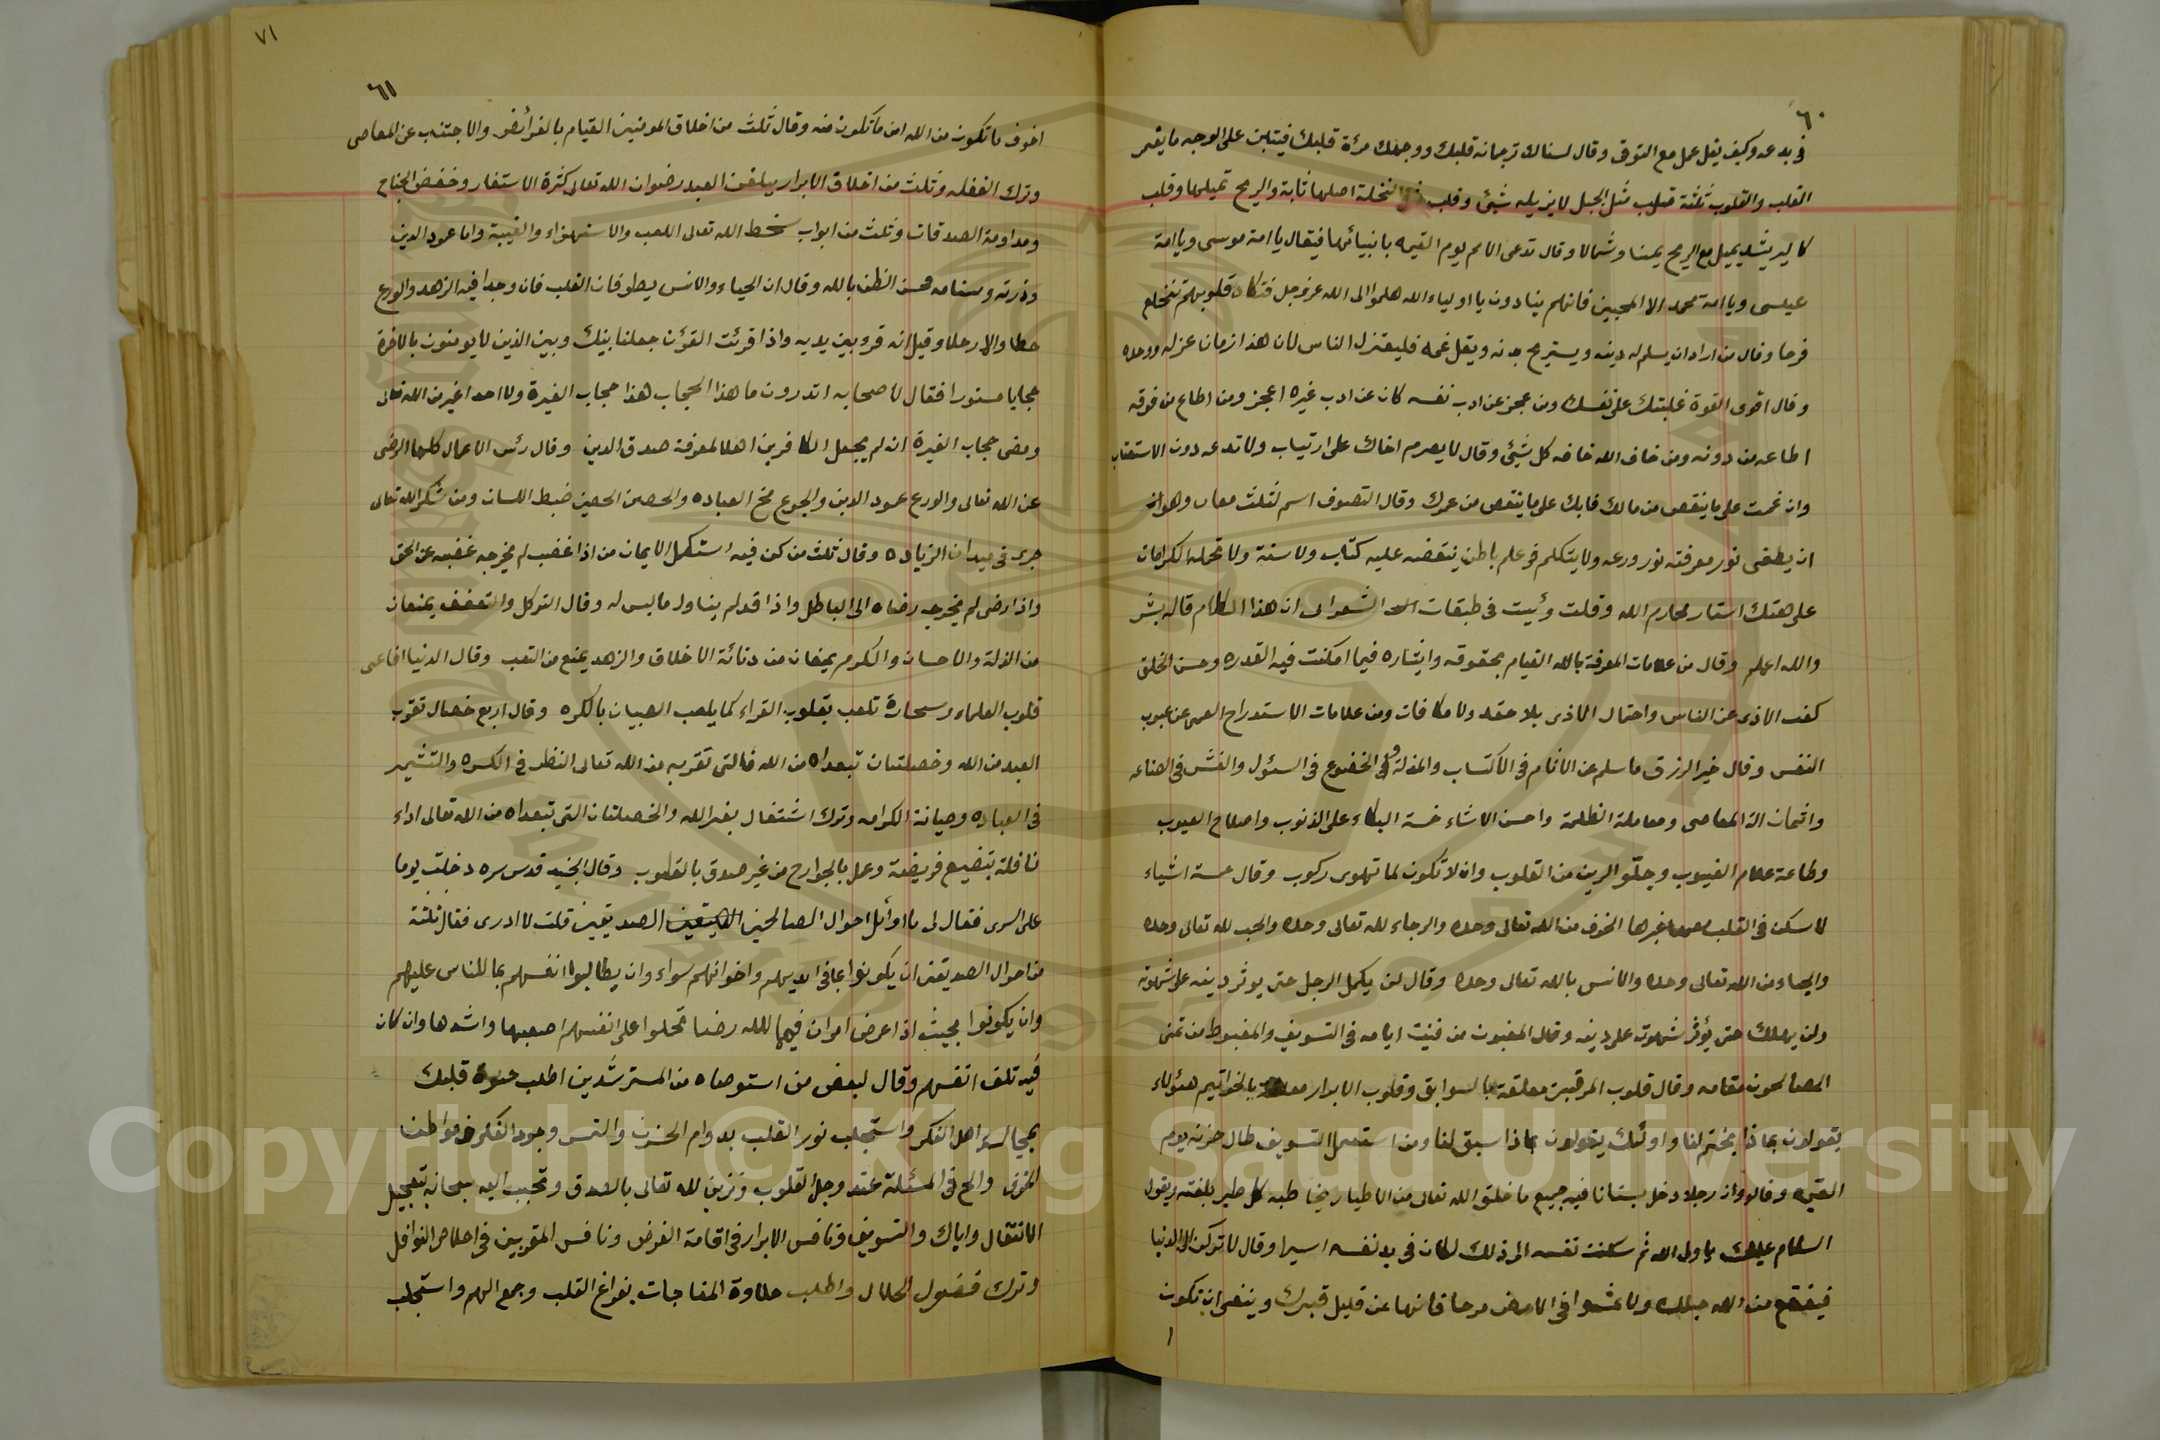 ٦٠
في بدعه وكيف يقل عمل مع التوقى وقال لسانك ترجمانه قلبك ووجهك مرءة قلبك فيتبين على الوجه ما يضمر
القلب والقلوب ثلثة قلب مثل الجبل لا يزيله شئ وقلب النخلة اصلها ثابتة والريح تميلها وقلب
كالريشة يميل مع الريح يمينا وشمالا وقال تدعى الامم يوم القيمه بانبيائها فيقال يا امة موسى ويا امة
عيسى ويا امة محمد الا المحبين فانهم ينادون يا اولياء الله هلموا الى الله عز وجل فتكاد قلوبهم تنخلع
فرحا وقال من اراد ان يسلم له دينه ويستريح بدنه ويقل غمه فليعتزل الناس لان هذا زمان عزله ووحده
وقال اقوى القوة غلبتك على نفسك ومن عجز عن ادب نفسه كان عن ادب غيره اعجز ومن اطاع من فوقه
اطاعه من دونه ومن خاف الله خافه كل شئ وقال لا يصرم اخاك على ارتياب ولا تدعه دون الاستعتاب
وان غممت على ما ينقص من مالك فابك على ما ينقص من عمرك وقال التصوف اسم لثلث معان وهو ان
ان يطفى نور معرفته نور ورعه ولا يتكلم في علم باطن ينقضه عليه كتاب ولا سنة ولا تحمله الكرامات
على هتك استار محارم الله وقلت رأيت في طبقات الشعرانى ان هذا الكلام قاله بشر
والله اعلم وقال من علامات المعرفة بالله القيام بحقوقه وايثاره فيما امكنت فيه القدره وحسن الخلق
كف الاذى عن الناس واحتمال الاذى بلا حقد ولا مكافات ومن علامات الاستدراج العمى عن عيوب
النفس وقال خير الرزق ما سلم عن الاثام في الاكتساب والمذلة والخضوع في السئول والغش في الصناعه
واثمان الة المعاصى ومعاملة الظلمة واحسن الاشياء خمسة البكاء على الذنوب واصلاح العيوب
وطاعة علام الغيوب وجلّو الرين من القلوب وان لا تكون لما تهوى ركوب وقال خمسة اشياء
لا سكن في القلب معها غيرها الخوف من الله تعالى وحده والرجاء لله تعالى وحده والحب لله تعالى وحده
والحياء من الله تعالى وحده والانس بالله تعالى وحده وقال لن يكمل الرجل حتى يوثر دينه على شهوته
ولن يهلك حتى يؤثر شهوته على دينه وقال المغبون من فنيت ايامه في التسويف والمغبوط من تمنى
الصالحون مقامه وقال قلوب المقربين معلقة بالسوابق وقلوب الابرار معلقة بالخواتيم هئولاء
يقولون بماذا يختم لنا واولئك يقولون بماذا سبق لنا ومن استعمل التسويف طال حزنه يوم
القيمه وقال لو ان رجلا دخل بستانا فيه جميع ما خلق الله تعالى من الاطيار يخاطبه كل طير بلغته ويقول
السلام عليك يا ولى الله ثم سكنت نفسه الى ذلك لكان في يد نفسه اسيرا وقال لا تركن الى الدنيا
فينقطع من الله حبلك ولا تمشوا في الارض مرحا فانها عن قليل قبرك وينبغى ان تكون
٧١
٦١
اخوف ما تكون من الله امن ما تكون منه وقال ثلث من اخلاق المومنين القيام بالفرائض والاجتناب عن المعاصى
وترك الغفله وثلث من اخلاق الابرار يبلغن العبد رضوان الله تعالى كثرة الاستغفار وخفض الجناح
ومداومة الصدقات وثلث من ابواب سخط الله تعالى اللعب والاستهزاء والغيبة واما عمود الدين
وذرته وسنامه حسن الظن بالله وقال ان الحياء والانس يطوفان القلب فان وجدا فيه الزهد والورع
حطا والا رحلا وقيل انه قرء بين يديه واذا قرئت القرءن جعلنا بينك وبين الذين لا يومنون بالاخرة
حجابا مستورا فقال لاصحابه اتدرون ما هذا الحجاب هذا حجاب الغيرة ولا احد اغير من الله تعالى
ومعنى حجاب الغيرة انه لم يجعل الكافرين اهلا لمعرفة صدق الدين وقال رئس الاعمال كلها الرضى
عن الله تعالى والورع عمود الدين والجوع مخ العباده والحصن الحصين ضبط اللسان ومن شكر الله تعالى
جرى في ميدان الزياده وقال ثلث من كن فيه استكمل الايمان من اذا غضب لم يخرجه غضبه عن الحق
واذا رضى لم يخرجه رضاه الى الباطل واذا قدر لم يتناول ما ليس له وقال التوكل والتعفف يمنعان
من الذلة والاحسان والكرم يمنعان من دنائة الاخلاق والزهد يمنع من التعب وقال الدنيا افاعى
قلوب العلماء وسحارة تلعب بقلوب القراء كما يلعب الصبيان بالكره وقال اربع خصال تقرب
العبد من الله وخصلتان تبعداه من الله فالتى تقربه من الله تعالى النظر في الكسره والتشمير
في العباده وصيانة الكرامه وترك اشتغال بغير الله والخصلتان التى تبعداه من الله تعالى اداء
نافلة بتضيع فريضة وعمل بالجوارح من غير صدق بالقلوب وقال الجنيد قدس سره دخلت يوما
على السرى فقال لى ما اوائل احوال الصالحين الصديقين قلت لا ادرى فقال ثلثة
من احوال الصديقين ان يكونوا بما في ايديهم واخوانهم سواء وان يطالبوا انفسهم بما للناس عليهم
وان يكونوا بحيث اذا عرض امران فيهما لله رضا تحملوا على انفسهم اصعبها واشدها وان كان
فيه تلف انفسهم وقال لبعض من استوصاه من المسترشدين اطلب حيوة قلبك
بمجالسة اهل الفكر واستجلب نور القلب بدوام الحزن والتمس وجود الفكر في مواطن
الخوف والح في المسئلة عند وجل القلوب وتزين لله تعالى بالصدق وتحبب اليه سبحانه بتعجيل
الانتقال واياك والتسويف وتنافس الابرار في اقامة الفرض ونافس المقربين في اخلاص النوافل
وترك فضول الحلال واطلب حلاوة المناجات بفراغ القلب وجمع الهم واستجلب
Copyright © King Saud University